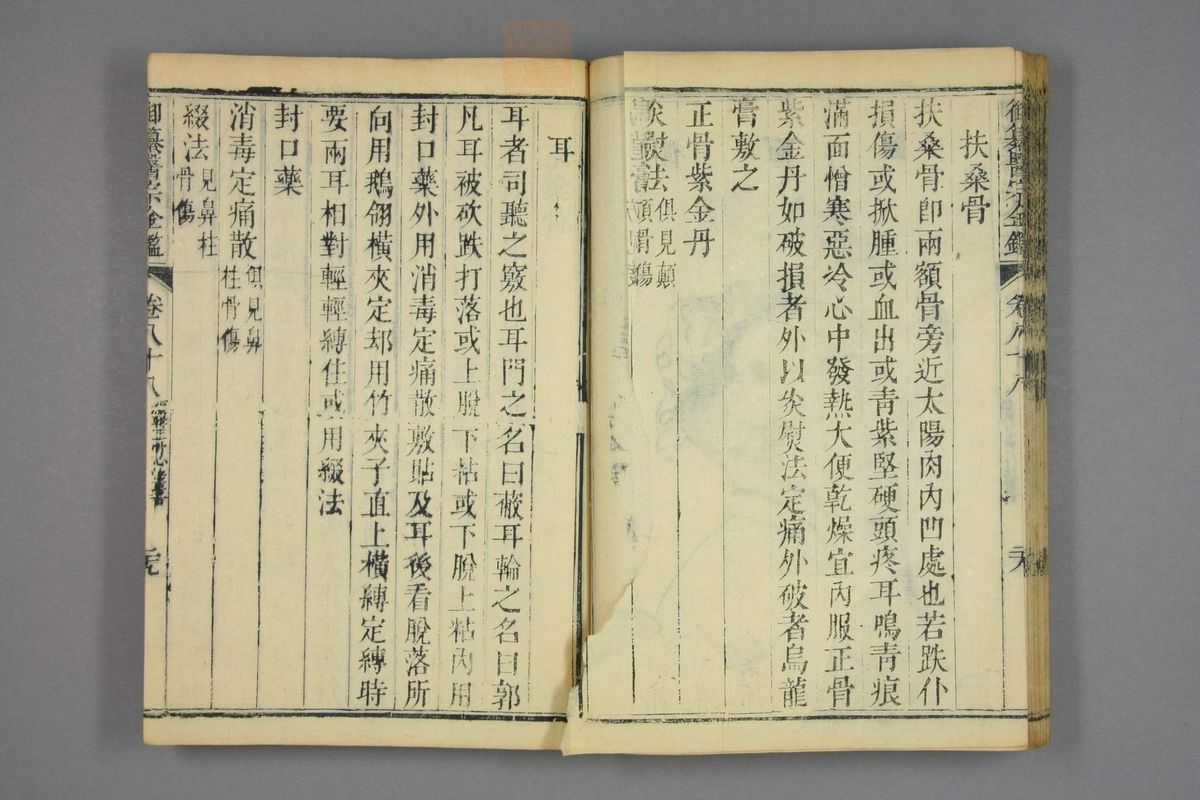 御纂醫宗金鑑 卷八十八
扶桑骨
扶桑骨卽兩額骨旁近太陽肉內凹處也若跌仆
損傷或掀腫或血出或青紫堅硬頭疼耳鳴青痕
滿面憎寒惡冷心中發熱大便乾燥宜內服正骨
紫金丹如破損者外以炙熨法定痛外破者烏龍
膏敷之
正骨紫金丹
熨法俱見顛
頂骨傷
耳
耳者司聽之竅也耳門之名曰蔽耳輪之名曰郭
凡耳被砍跌打落或上脫下粘或下脫上粘內用
封口藥外用消毒定痛散敷貼及耳後看脫落所
向用鵝翎橫夾定却用竹夾子直上橫縛定縛時
要兩耳相對輕輕縛住或用綴法
封口藥
消毒定痛散俱見鼻
柱骨傷
綴法見鼻柱
骨傷
御纂醫宗金鑑 卷八十八